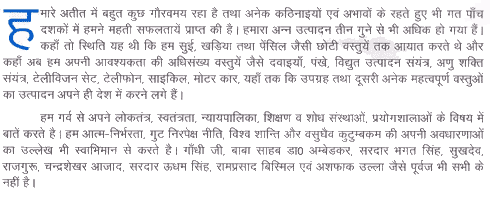 हमारे अतीत में बहुत कुछ गौरवमय रहा है तथा अनेक कठिनाइयों एवं अभावों के रहते हुए भी गत पाँच
दशकों में हमने महती सफलतायें प्राप्त की है। हमारा अन्न उत्पादन तीन गुने से भी अधिक हो गया हैं।
कहाँ तो स्थिति यह थी कि हम सुई, खड़िया तथा पेंसिल जैसी छोटी वस्तुयें तक आयात करते थे और
कहाँ अब हम अपनी आवश्यकता की अधिसंख्य वस्तुयें जैसे दवाइयाँ, पंखे, विद्युत उत्पादन संयत्र, अणु शक्ति
संयंत्र, टेलीविजन सेट, टेलीफोन, साइकिल, मोटर कार, यहाँ तक कि उपग्रह तथा दूसरी अनेक महत्वपूर्ण वस्तुओं
का उत्पादन अपने ही देश में करने लगे हैं।
हम गर्व से अपने लोकतंत्र, स्वतंत्रता, न्यायपालिका, शिक्षण व शोध संस्थाओं, प्रयोगशालाओं के विषय में
बातें करते है। हम आत्म-निर्भरता, गुट निरपेक्ष नीति, विश्व शान्ति और वसुधैव कुटुम्बकम की अपनी अवधारणाओं
का उल्लेख भी स्वाभिमान से करते है। गाँधी जी, बाबा साहब डा0 अम्बेडकर, सरदार भगत सिंह, सुखदेव,
राजगुरू, चन्द्रशेखर आजाद, सरदार ऊधम सिंह, रामप्रसाद बिस्मिल एवं अशफाक उल्ला जैसे पूर्वज भी सभी के
नहीं है।